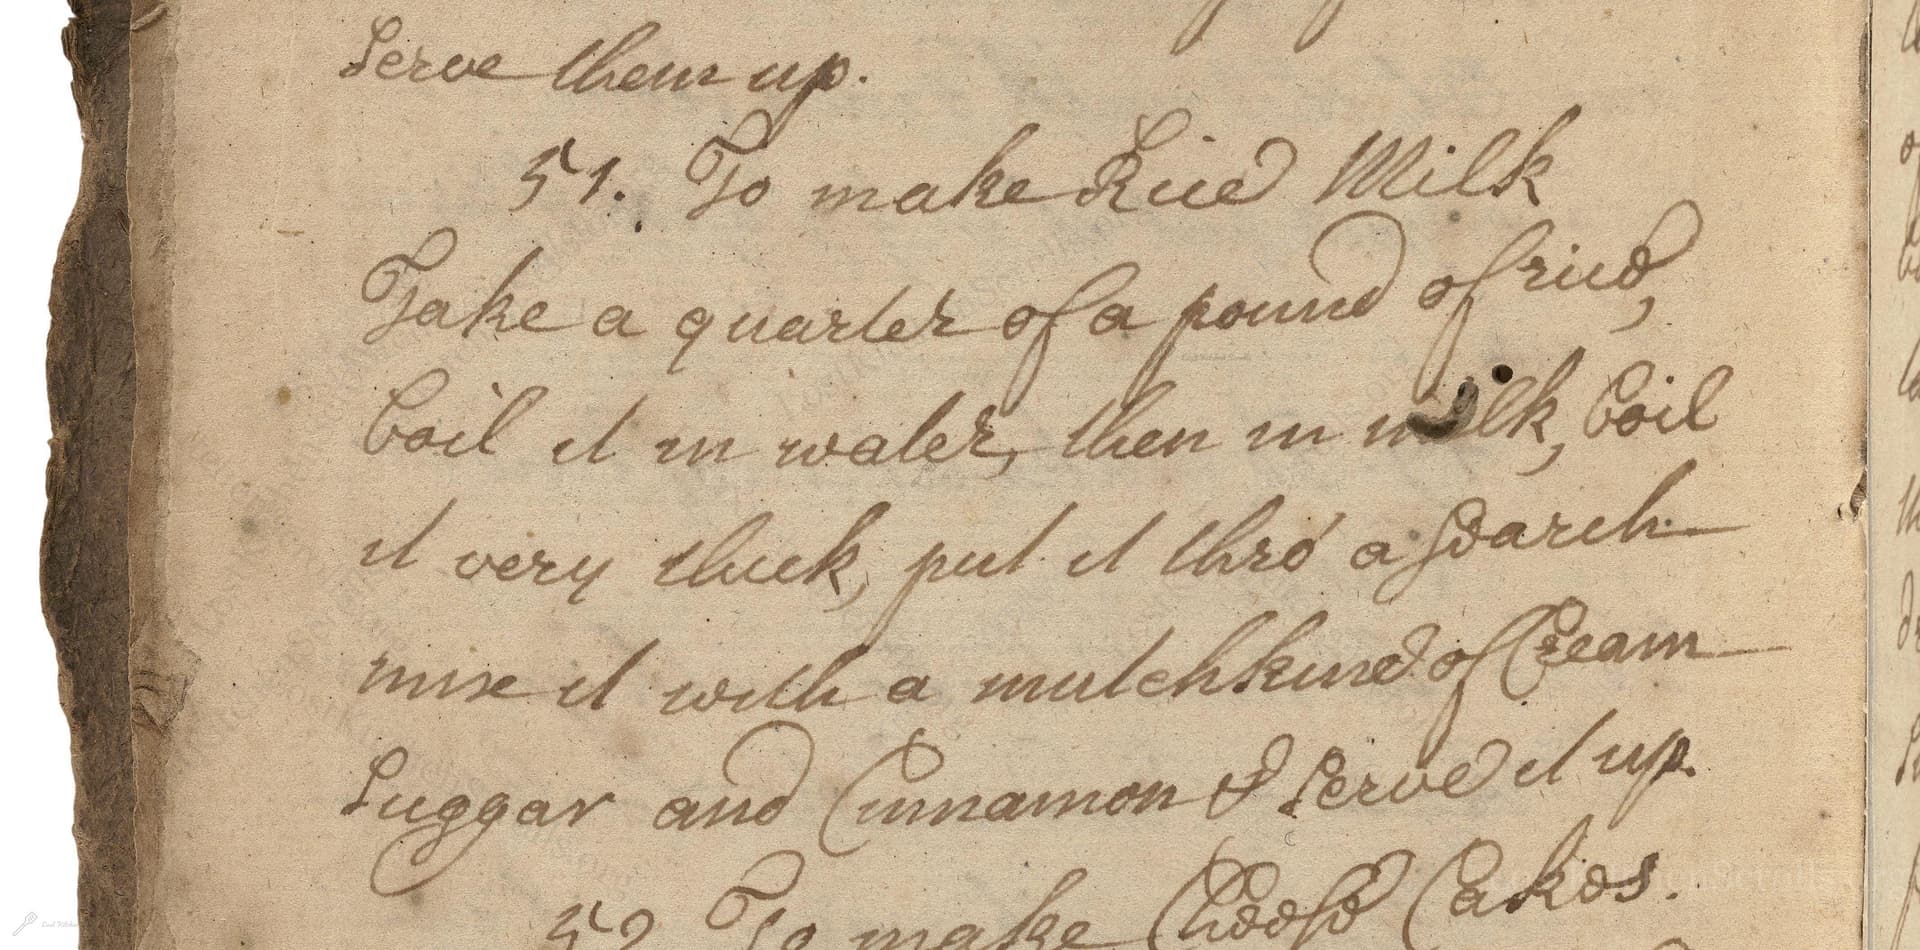 Serve them up.
51. To make Rice Milk
Take a quarter of a pound of rice,
boil it in water, then in milk, boil
it very thick, put it thro' a Search
mix it with a mutchkine of Cream
Suggar and Cinnamon & Serve it up.
52 To make Cheese Cakes.